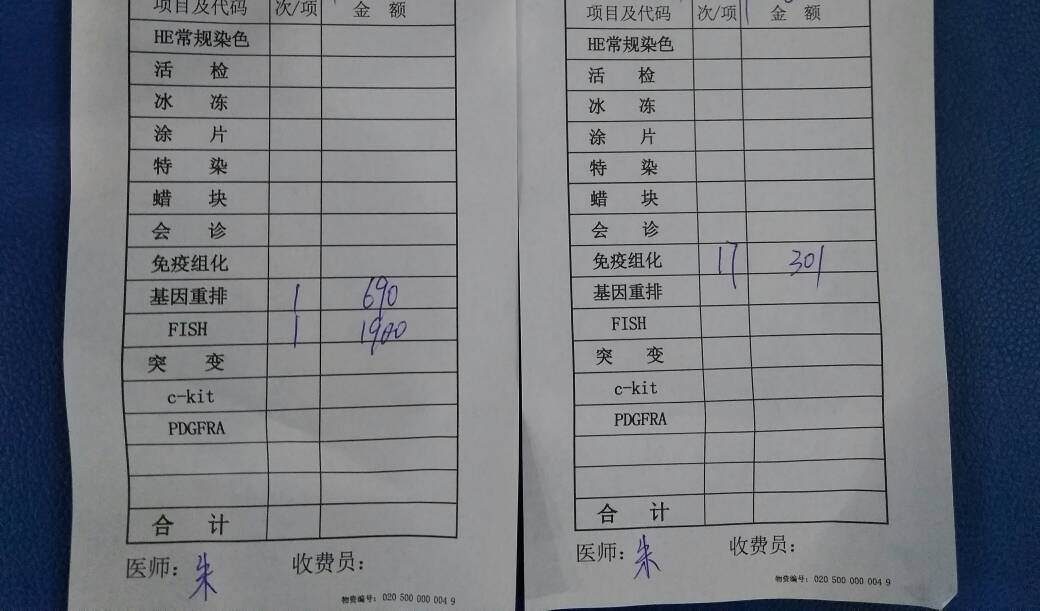 项目及代码 次/项 金 额
HE常规染色
活 检
冰 冻
涂 片
特 染
蜡 块
会 诊
免疫组化
基因重排 1 690
FISH 1 1900
突 变
c-kit
PDGFRA
合 计
医师: 朱 收费员:
物资编号: 020 500 000 004 9
项目及代码 次/项 金 额
HE常规染色
活 检
冰 冻
涂 片
特 染
蜡 块
会 诊
免疫组化 17 301
基因重排
FISH
突 变
c-kit
PDGFRA
合 计
医师: 朱 收费员:
物资编号: 020 500 000 004 9